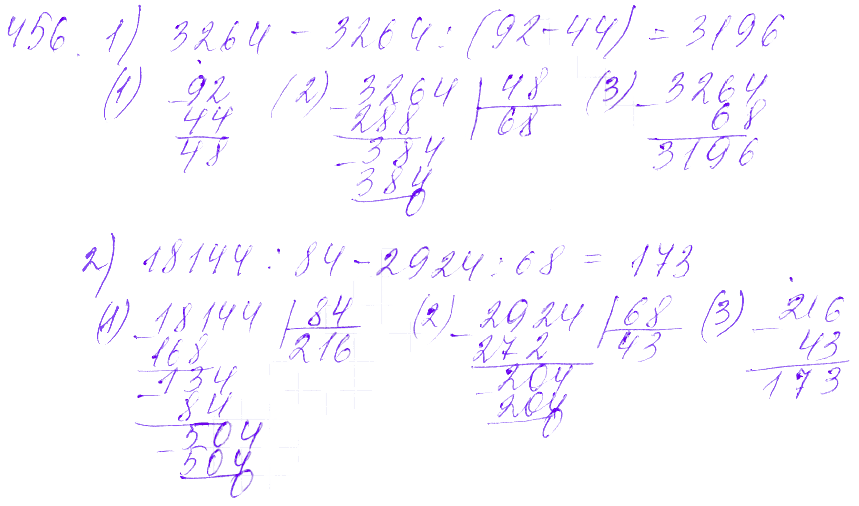 456. 1) 3264 - 3264 : (92-44) = 3196
(1) -92 (2) -3264 | 48 (3) -3264
44 288 68 68
48 -384 3196
384
0
2) 18144 : 84 - 2924 : 68 = 173
(1) -18144 | 84 (2) -2924 | 68 (3) -216
168 216 272 43 43
-134 -204 173
84 204
-504 0
504
0